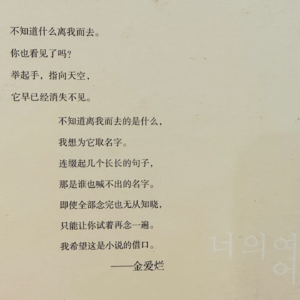 不知道什么离我而去。
你也看见了吗？
举起手，指向天空，
它早已经消失不见。
不知道离我而去的是什么，
我想为它取名字。
连缀起几个长长的句子，
那是谁也喊不出的名字。
即使全部念完也无从知晓，
只能让你试着再念一遍。
我希望这是小说的借口。
——金爱烂
너의 여
어